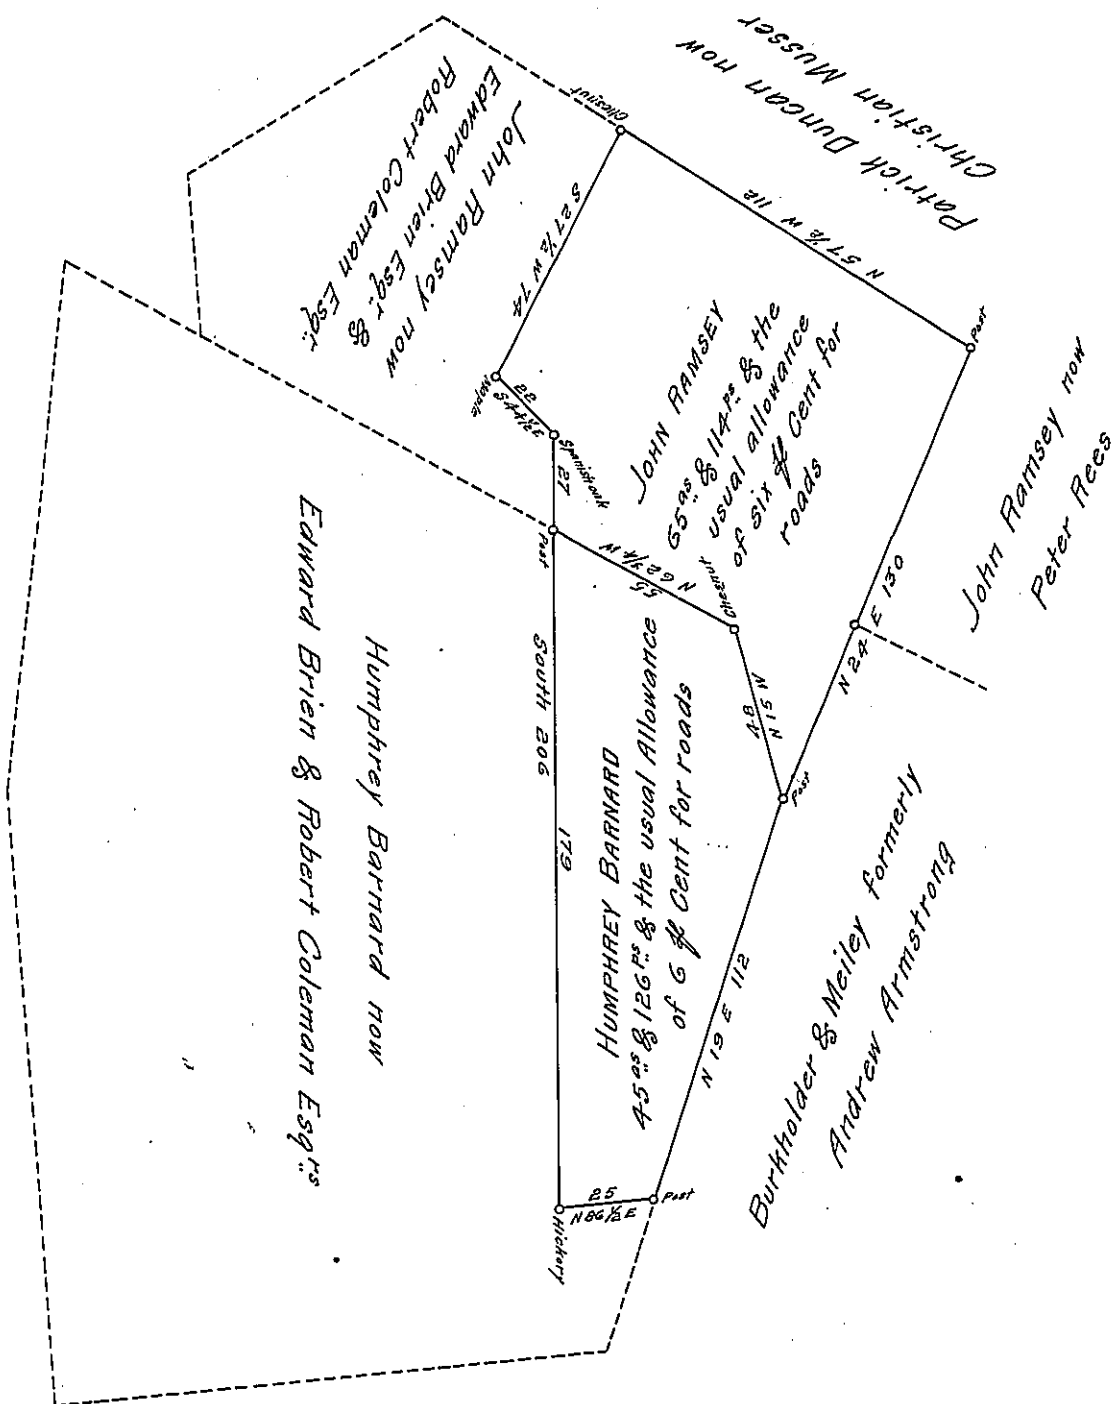 Patrick Duncan now
Christian Musser
John Ramsey now
Edward Brien Esqr. &
Robert Coleman Esqr.
Chesnut
S 27 1/2 W 74
N 57 1/2 W 112
Post
JOHN RAMSEY
65 as & 114 ps & the
usual allowance
of six ⅌ Cent for
roads
John Ramsey now
Peter Rees
Maple
22
S 44 1/2 E
Spanishoak
27
Post
N 62 3/4 W
55
Chesnut
N 15 W
48
N 24 E 130
Post
South 206
179
HUMPHREY BARNARD
45 as & 126 ps & the usual Allowance
of 6 ⅌ Cent for roads
N 19 E 112
Burkholder & Meiley formerly
Andrew Armstrong
Humphrey Barnard now
Edward Brien & Robert Coleman Esqrs
25
N 86 1/2 E
Post
Hickory